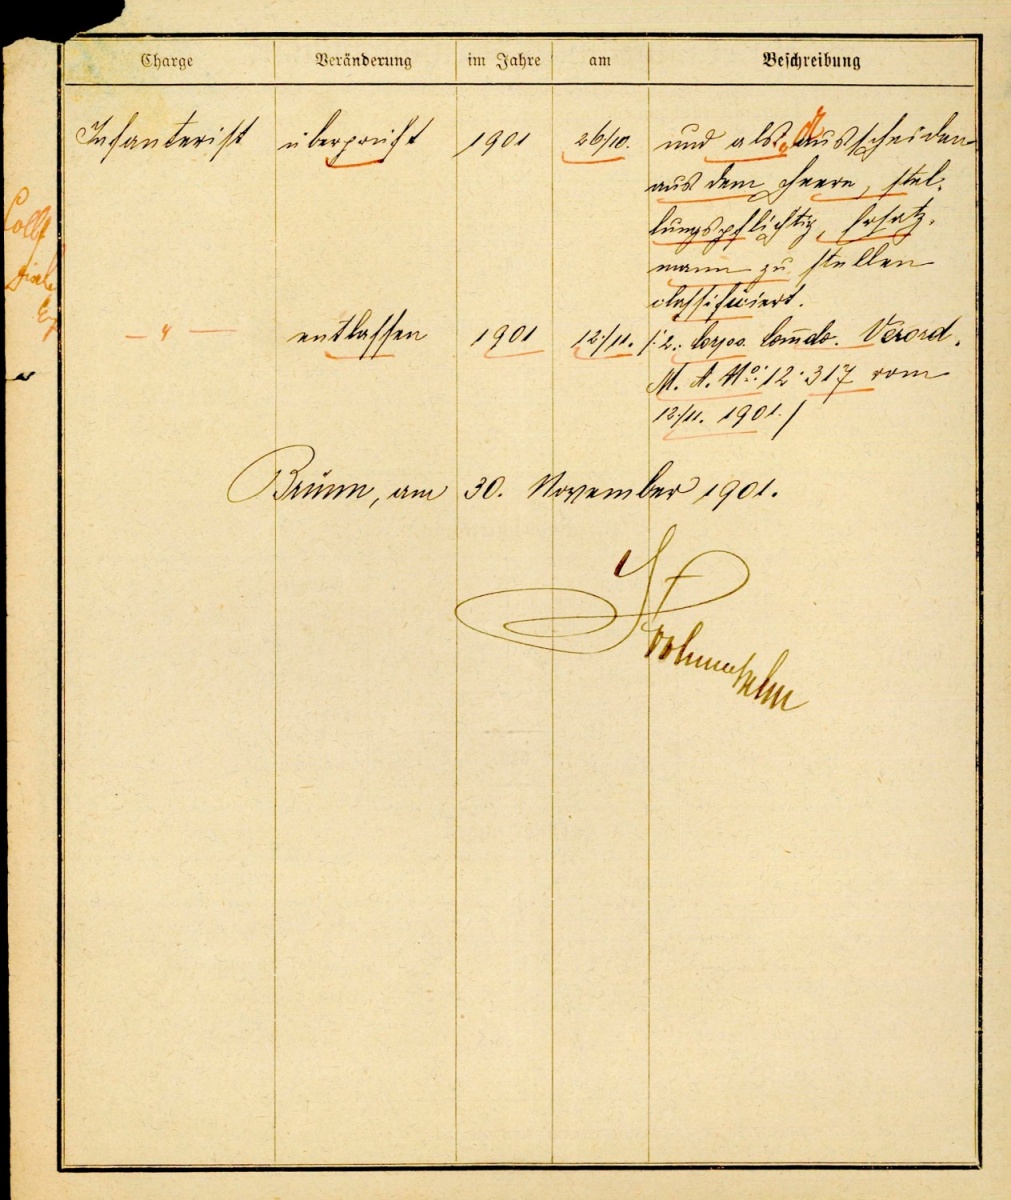 Charge Veränderung im Jahre am Beschreibung
Infanterist überprüft 1901 26/10. und als ausscheiden
aus dem Heere, stel-
lungspflichtig, Ersatz-
mann zu stellen
classificiert.
— " — entlassen 1901 12/11. /: 2. Corps Commdo. Verord.
M. A. No: 12.317 vom
12/11. 1901./
Brünn, am 30. November 1901.